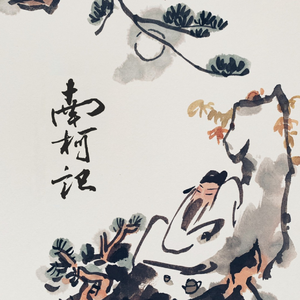 南柯记